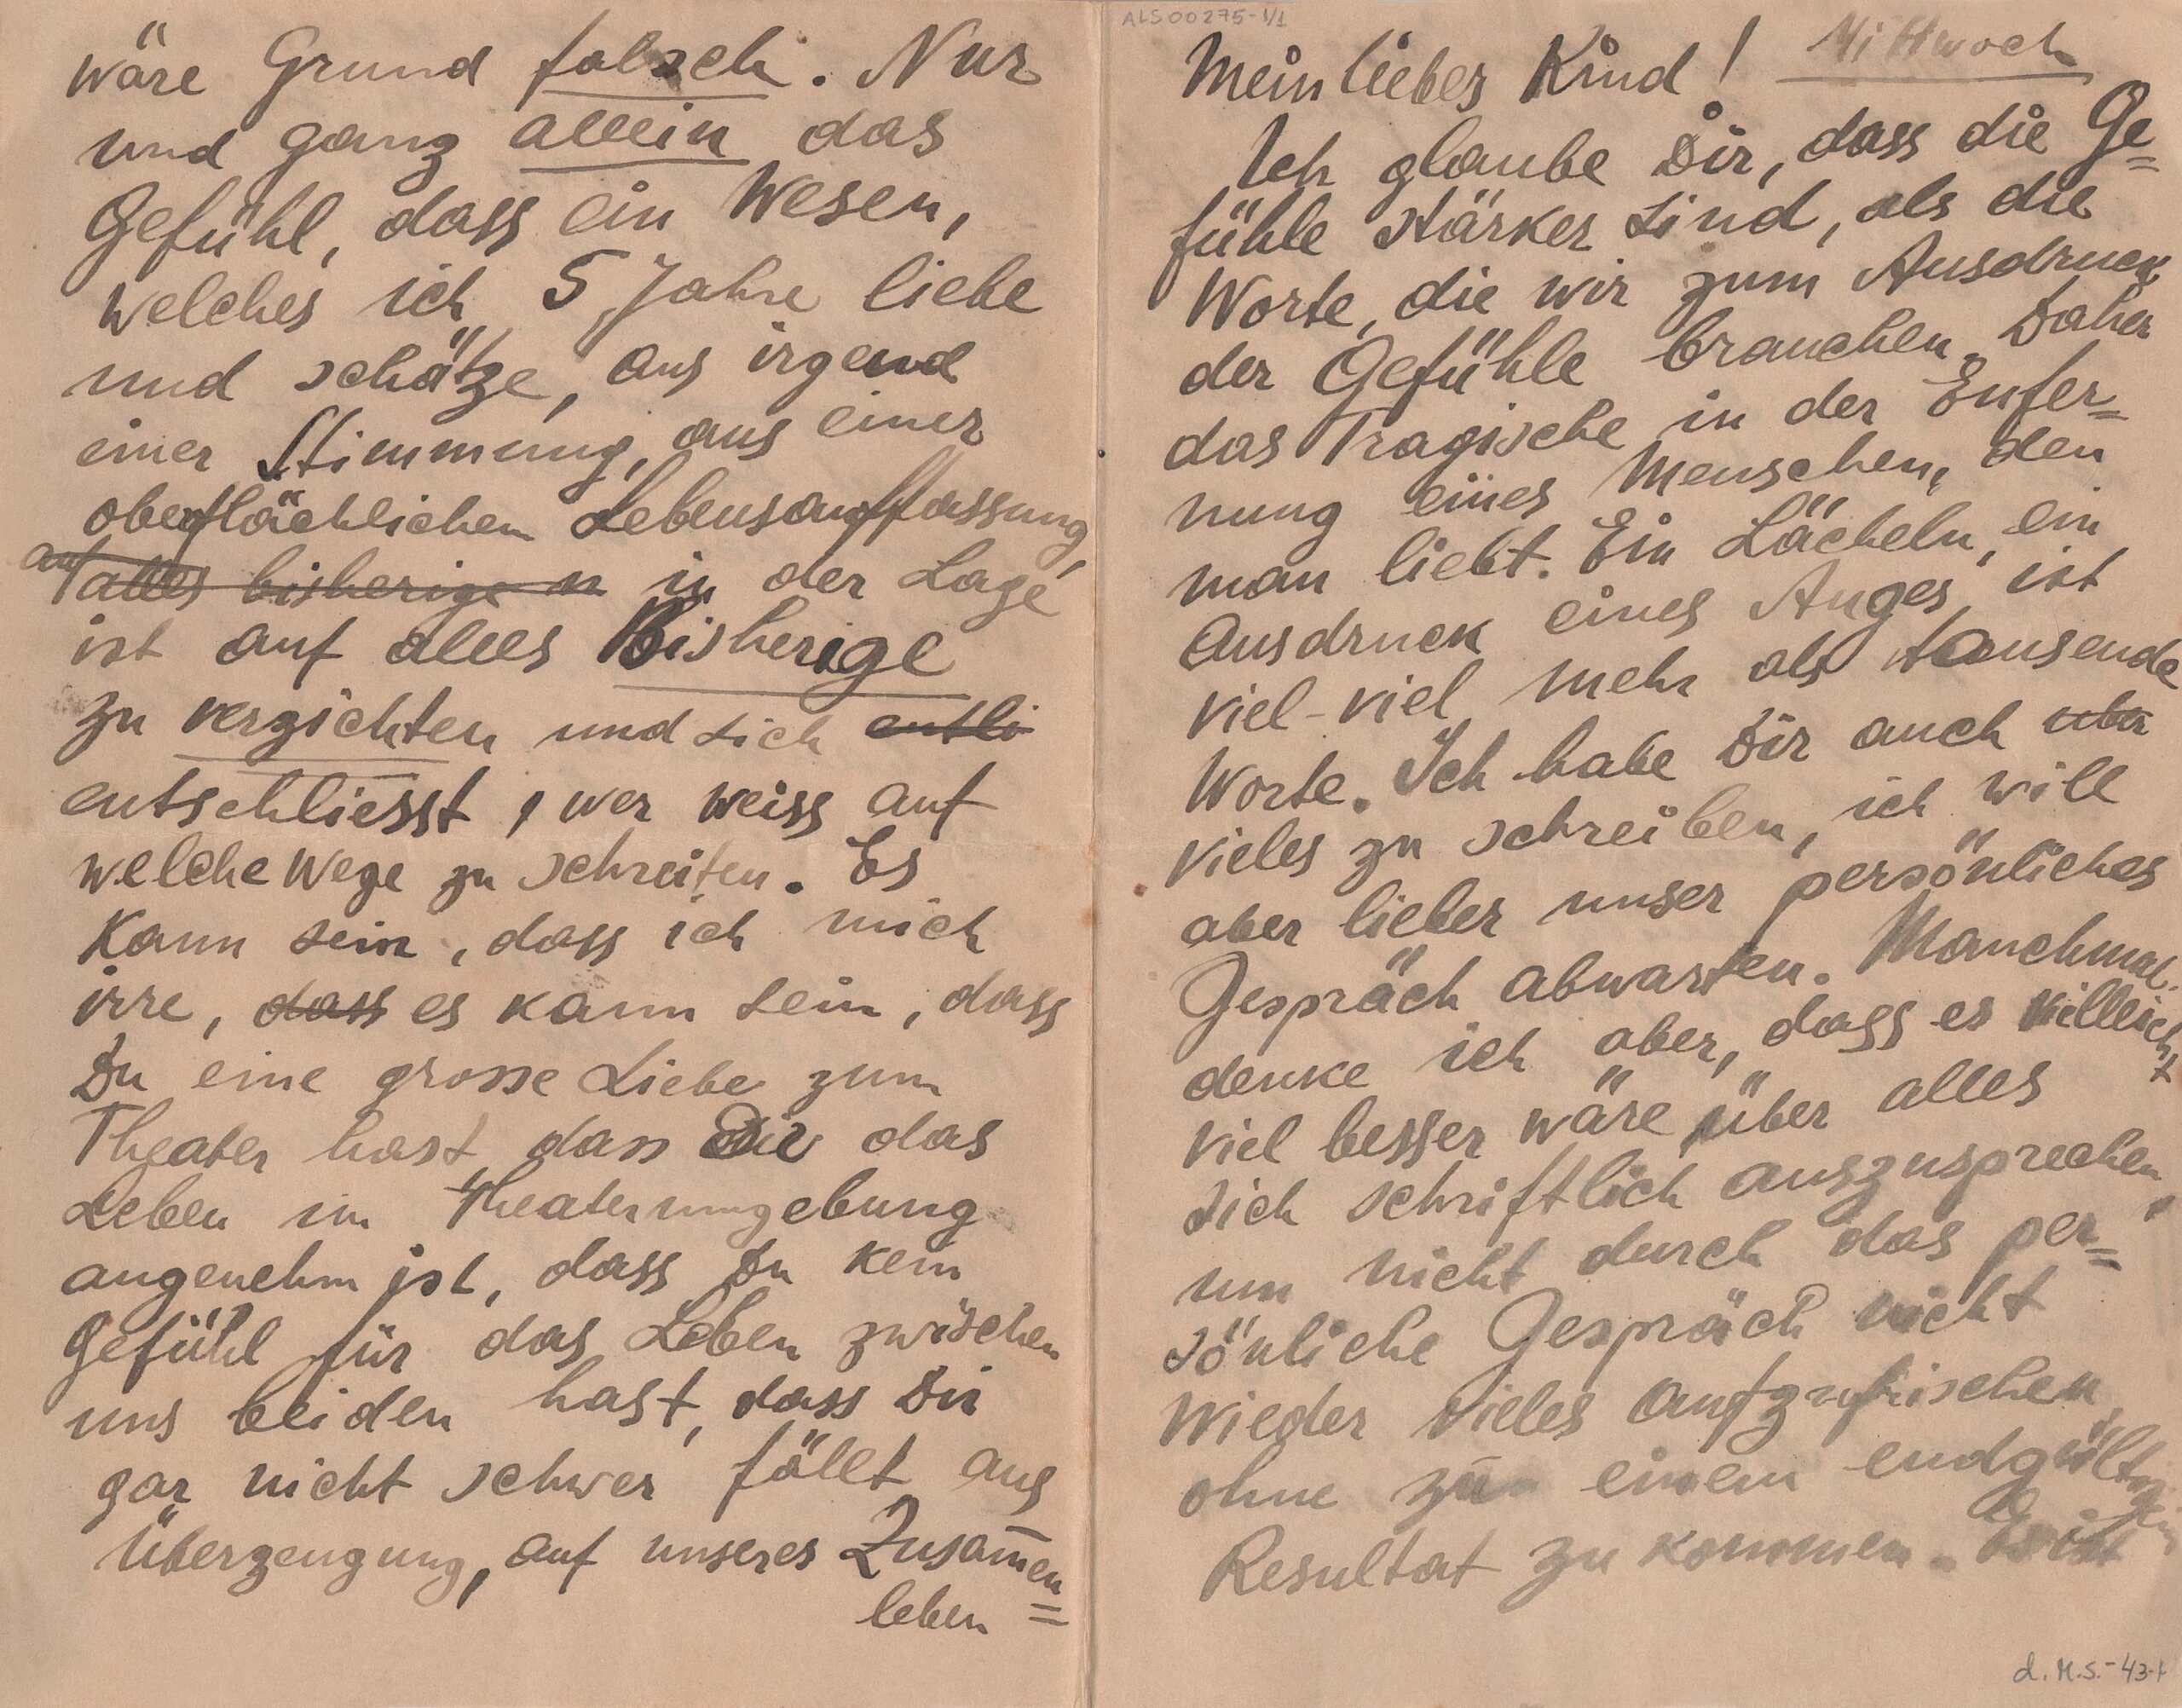 ALS00275-1/1
Mittwoch
Mein liebes Kind!
Ich glaube Dir, dass die Ge=
fühle stärker sind, als die
Worte, die wir zum Ausdruck
der Gefühle brauchen. Daher
das Tragische in der Enfer=
nung eines Menschen, den
man liebt. Ein Lächeln, ein
Ausdruck eines Auges, ist
viel-viel mehr als tausende
Worte. Ich habe Dir auch über
vieles zu schreiben, ich will
aber lieber unser persönliches
Gespräch abwarten. Manchmal
denke ich aber, dass es villeicht
viel besser wäre, über alles
sich schriftlich auszusprechen,
um nicht durch das per=
sönliche Gespräch nicht
wieder vieles aufzufrischen,
ohne zu einem endgültigen
Resultat zu kommen. Es ist
d.M.S.-43-1
wäre Grund falsch. Nur
und ganz allein das
Gefühl, dass ein Wesen,
welches ich 5 Jahre liebe
und schätze, aus irgend
einer Stimmung, aus einer
oberflächlichen Lebensauffassung,
auf alles bisherige n in der Lage
ist auf alles Bisherige
zu verzichten und sich entli
entschliesst, wer weiss auf
welche Wege zu schreiten. Es
kann sein, dass ich mich
irre, dass es kann sein, dass
Du eine grosse Liebe zum
Theater hast, dass Dir das
Leben im Theaterumgebung
angenehm ist, dass Du kein
Gefühl für das Leben zwischen
uns beiden hast, dass Dir
gar nicht schwer fällt aus
Überzeugung, auf unseres Zusam̅en=
leben